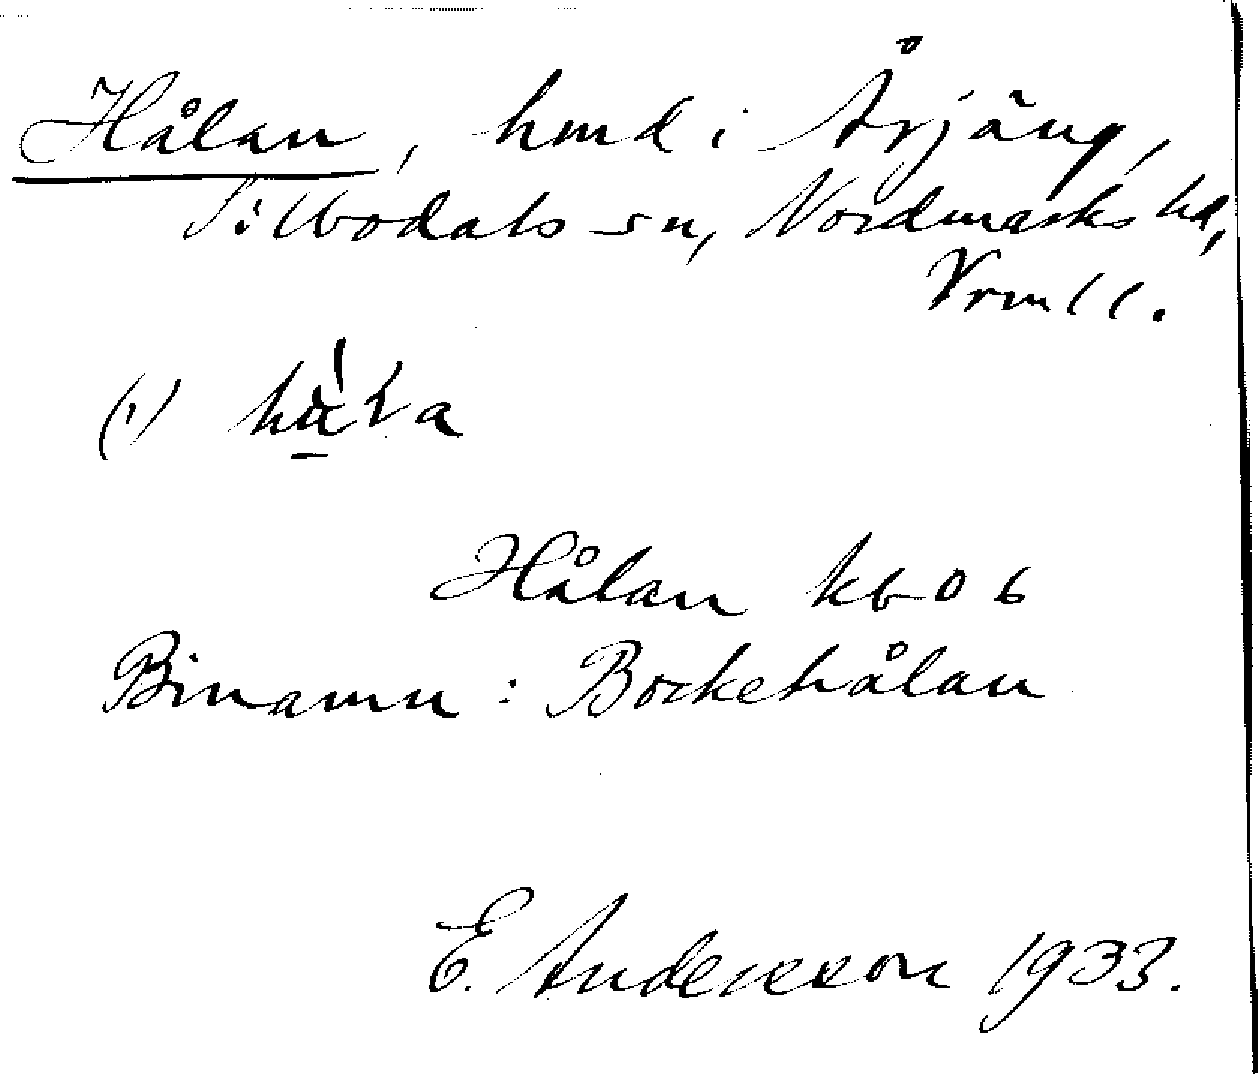 Hålan, hmd i Årjäng,
Sillbodals sn, Nordmarks hd,
Vrml.
(i)
Hålan kbob
Binamn: Bockehålan
E. Andersson 1933.